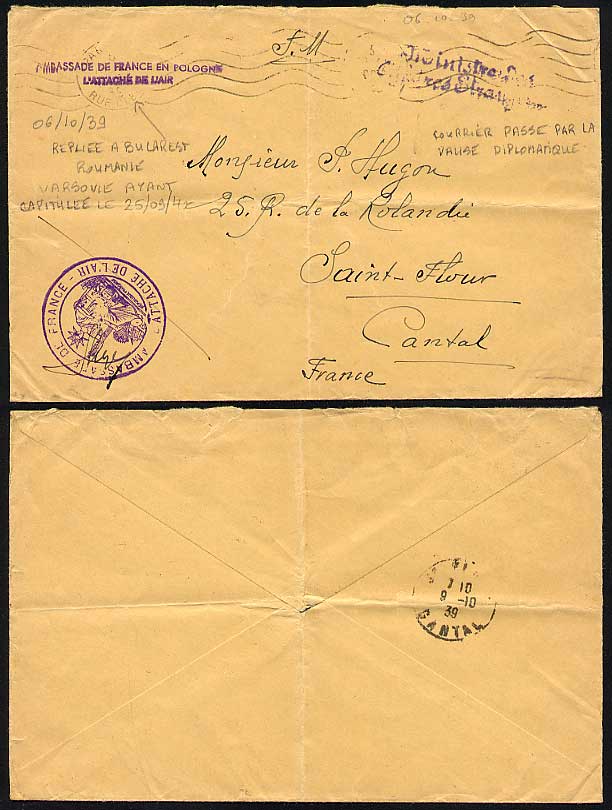 06.10.39
F.M
AMBASSADE DE FRANCE EN POLOGNE
L'ATTACHÉ DE L'AIR
RUE
Ministre des
Affaires Etrangères
06/10/39
REPLIEE A BUCAREST
ROUMANIE
VARSOVIE AYANT
CAPITULEE LE 25/09/
COURRIER PASSE PAR LA
VALISE DIPLOMATIQUE
Monsieur P. Hugon
25. R. de la Rolandie
Saint-Flour
Cantal
France
AMBASSADE DE FRANCE - ATTACHÉ DE L'AIR -
10
9 -10
39
CANTAL